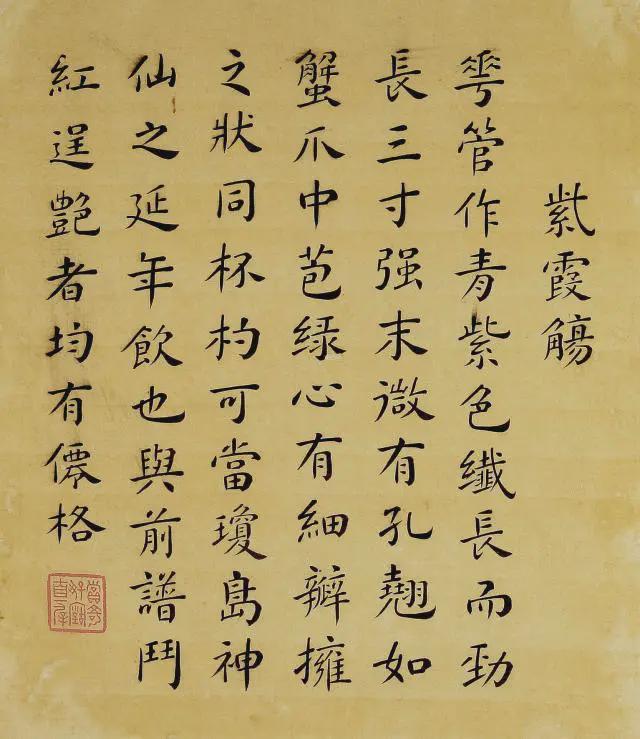 紫霞觴
蕐管作青紫色纖長而勁
長三寸强末微有孔翹如
蟹爪中苞緑心有細瓣擁
之狀同杯杓可當瓊島神
仙之延年飲也與前譜鬥
紅逞艷者均有僊格